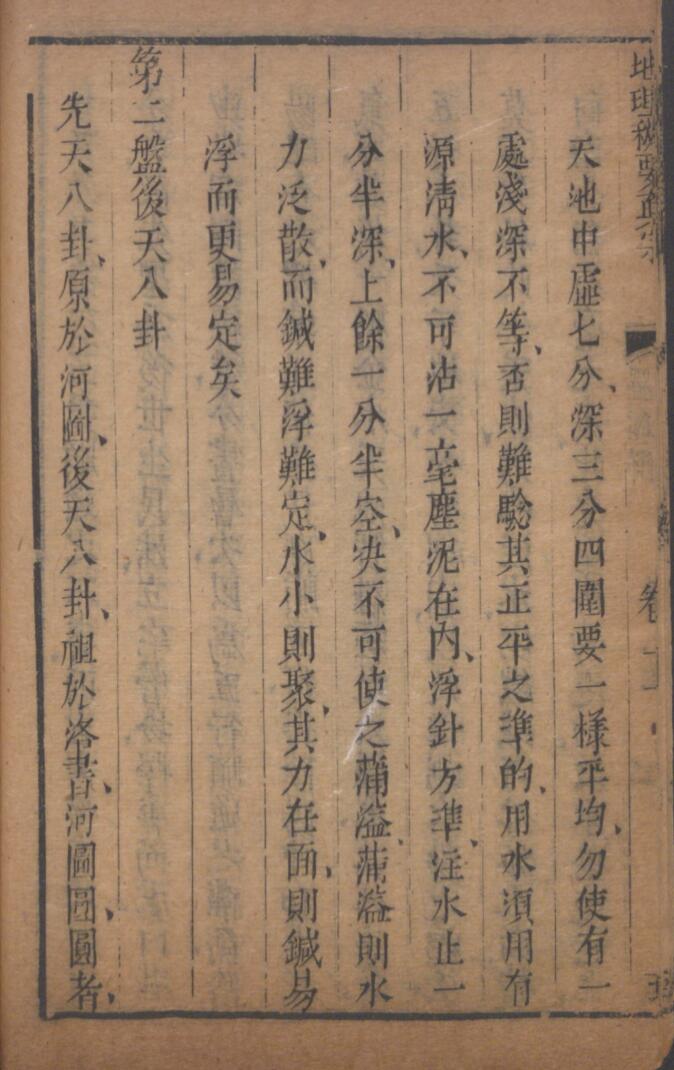 天池中虛七分、深三分四圍要一樣平均、勿使有一
處淺深不等、否則難騐其正平之準的、用水須用有
源淸水、不可沾一毫塵泥在內、浮針方準、注水止一
分半深、上餘一分半空、决不可使之蒲溢、蒲溢則水
力泛散、而鍼難浮難定、水小則聚、其力在面、則鍼易
浮而更易定矣
第二盤後天八卦
先天八卦、原於河圖、後天八卦、祖於洛書、河圖圖圓者、